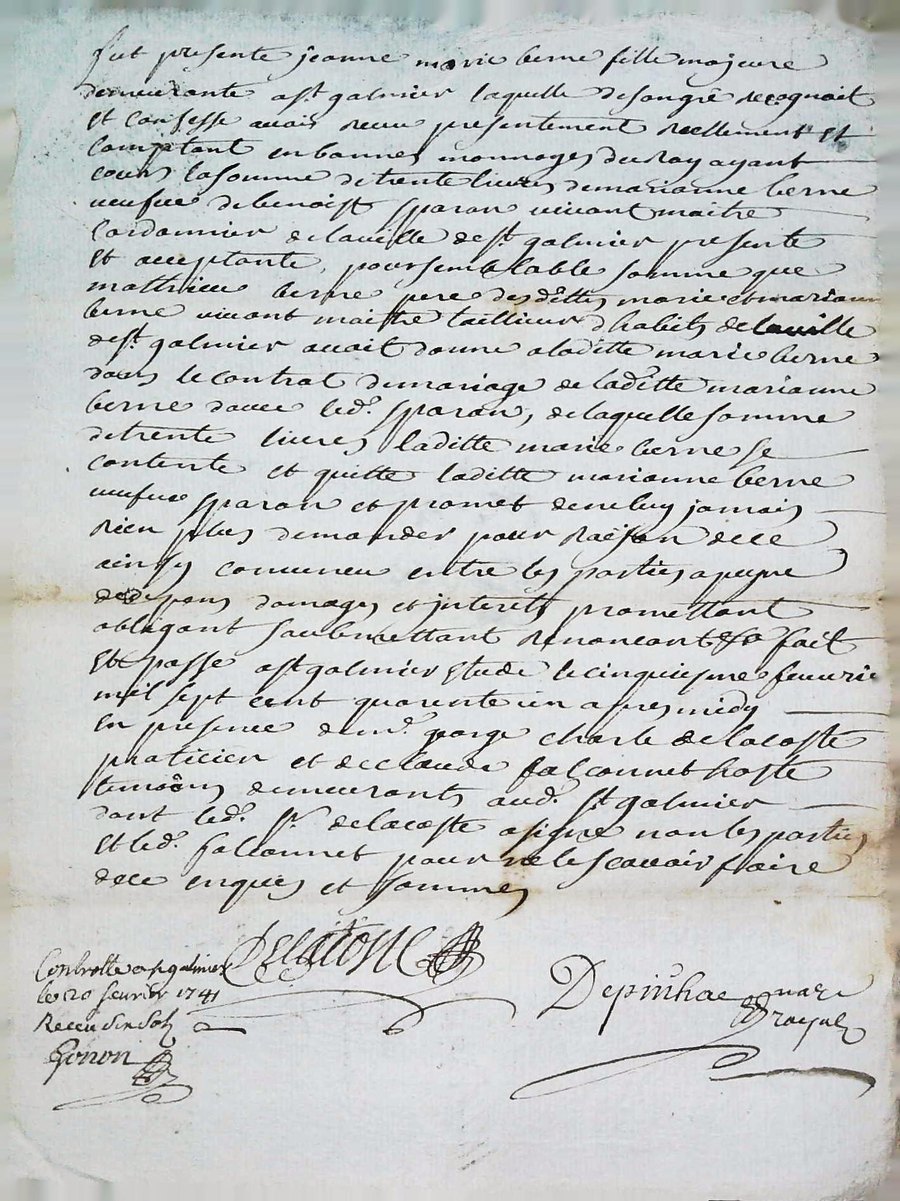 fut presente jeanne marie berne fille majeure
demeurante a st galmier laquelle de son gré recognoit
et confesse avoir receu presentement reellement et
comptant en bonnes monnoyes du roy ayant
cours la somme de trente livres de marianne berne
veufve de benoist sparon vivant maitre
cordonnier de la ville de st galmier presente
et acceptante, pour semblable somme que
mathieu berne pere des dittes marie et marianne
berne vivant maistre tailleur d'habits de la ville
de st galmier avait donné a laditte marie berne
dans le contrat de mariage de laditte marianne
berne d'avec led. sparon, de laquelle somme
de trente livres laditte marie berne se
contente et quitte laditte marianne berne
veufve sparon et promet de ne luy jamais
rien plus demander pour raison de ce
ainsy convenu entre les parties a peyne
de depens damages et jnterets promettant
obligant soubmettant renoncant fait
et passé a st galmier etude le cinquiesme fevvrie
mil sept cent quarente un apres midy
en presence de mr. george charle de lacoste
praticien et de claude falconnet hoste
temoins demeurants aud. st galmier
dont led. sr. delacoste a signé non les parties
et led. falconnet pour ne le scavoir faire
de ce enquis et sommés
Delacoste
Controllé a st galmier
le 20 fevrier 1741
Receu six sols
Gonon
Depinhac nare
royal